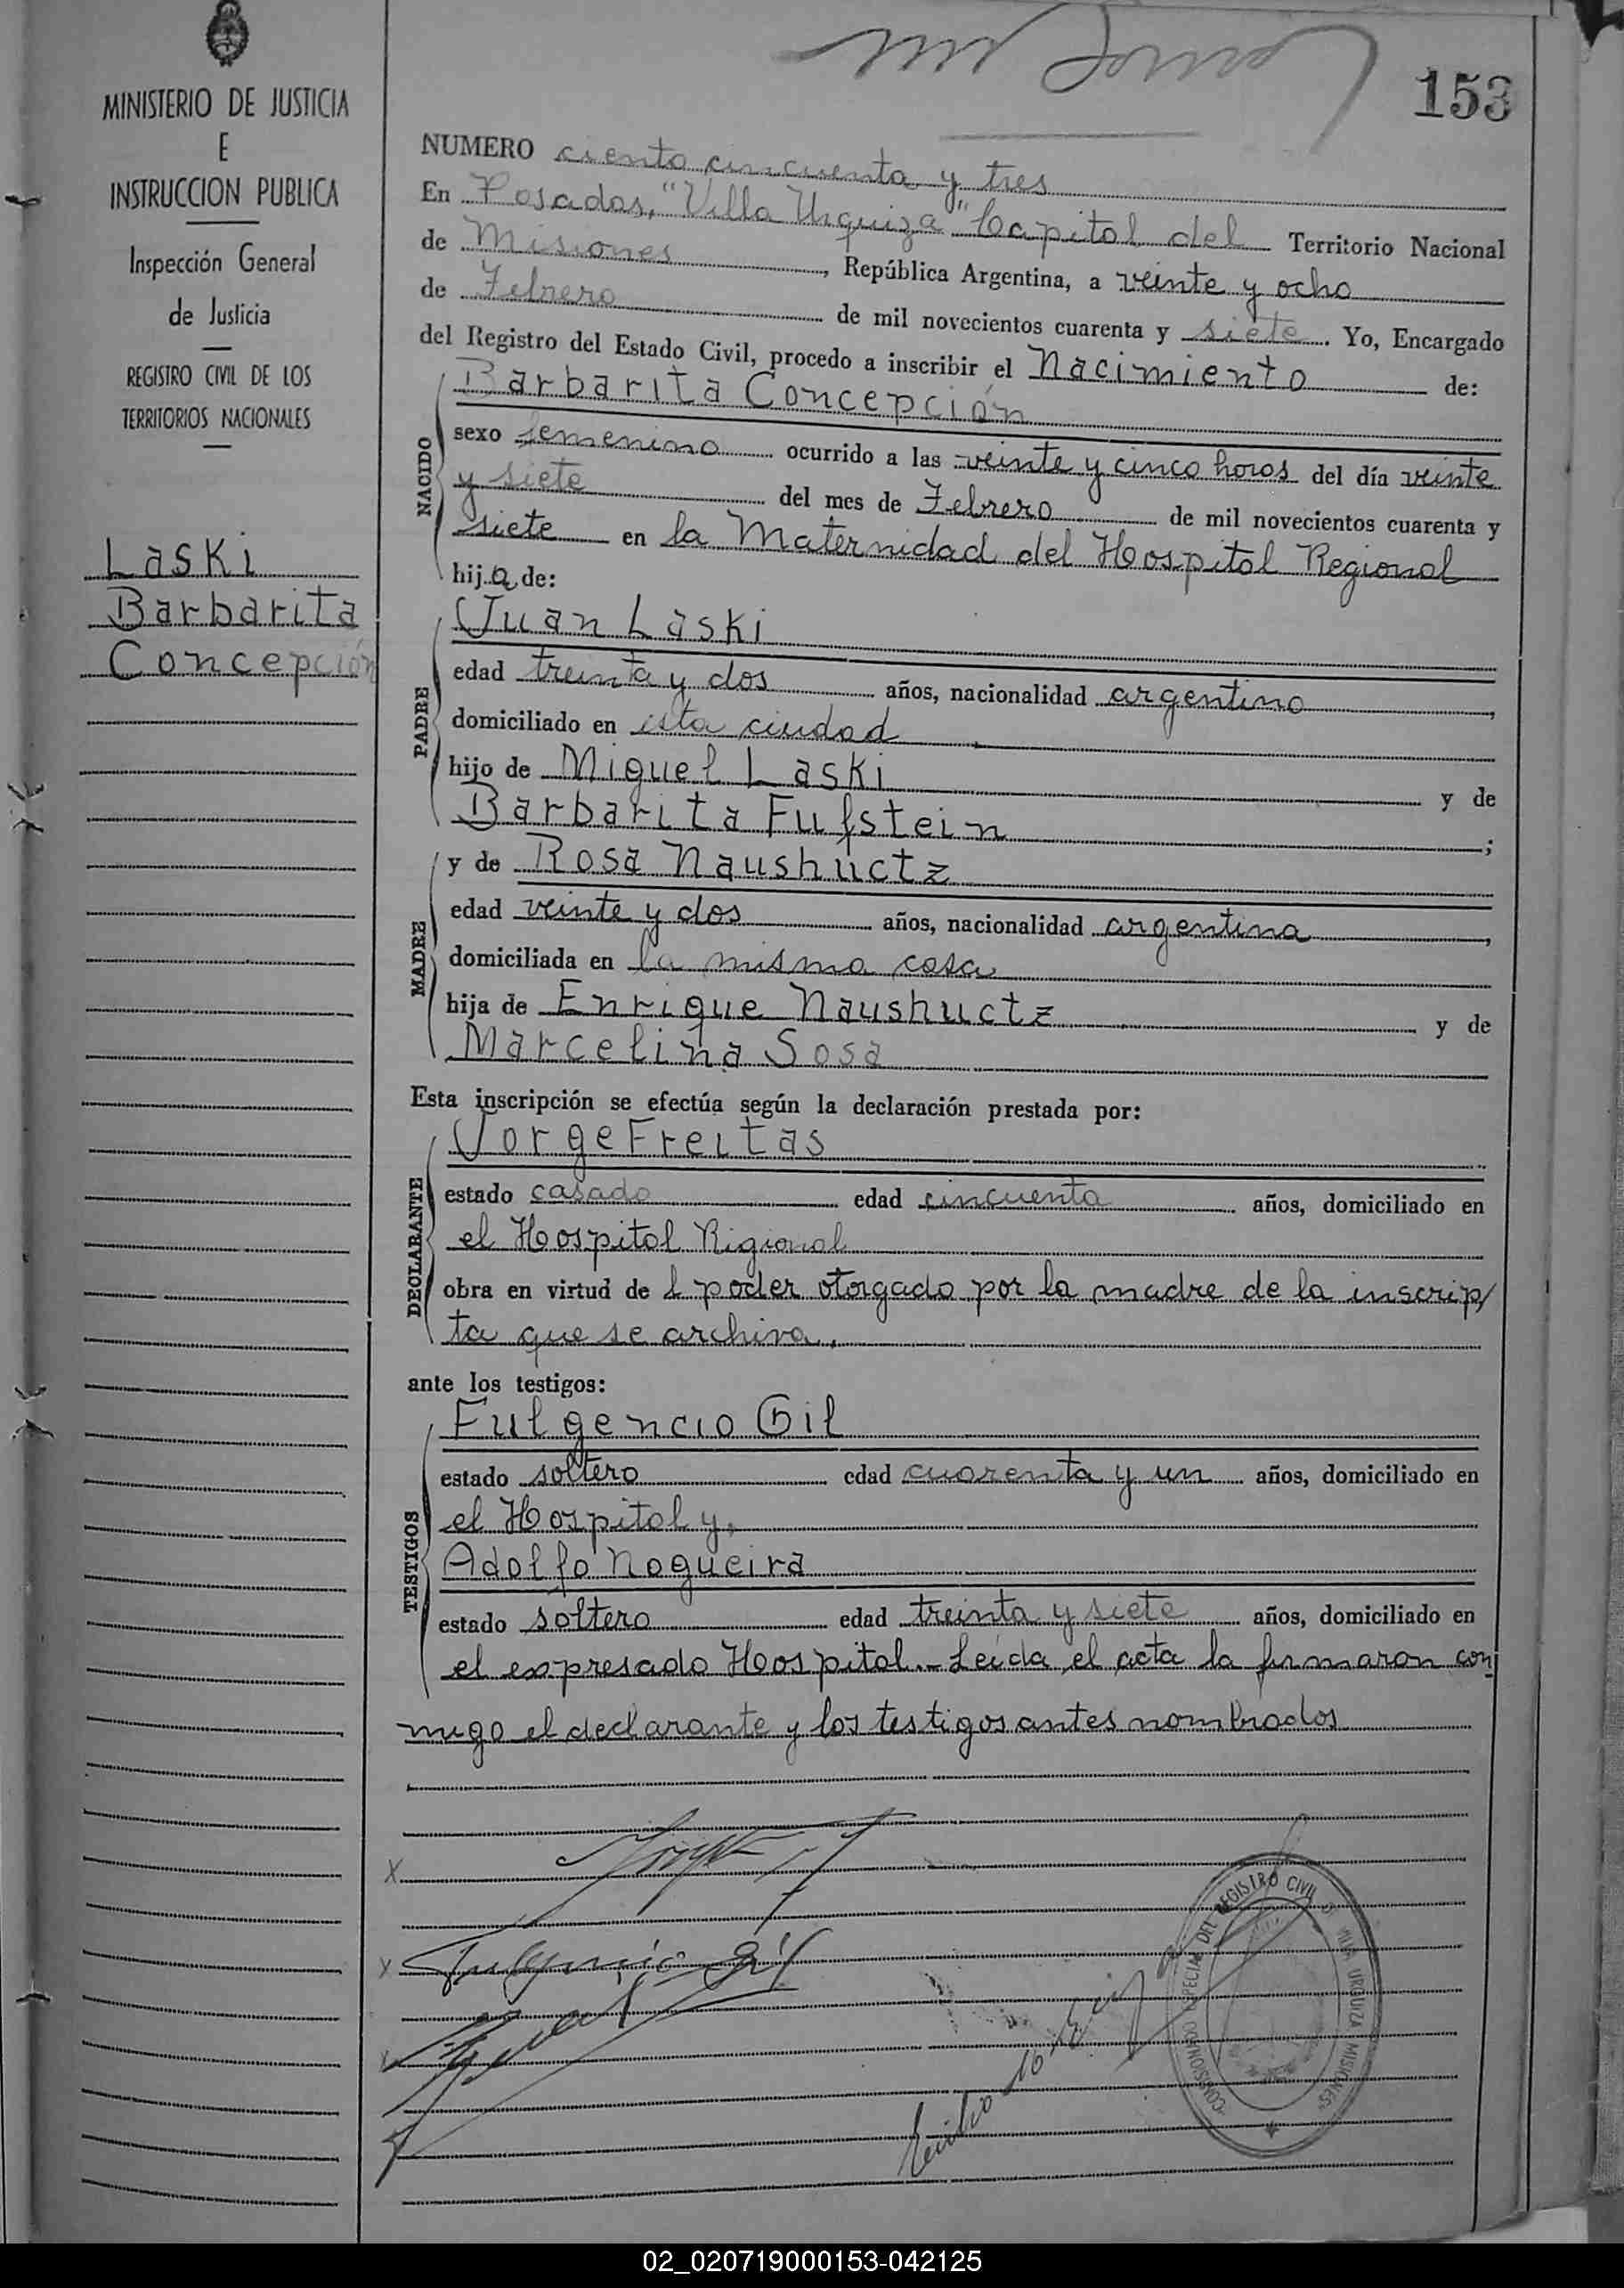 MINISTERIO DE JUSTICIA
E
INSTRUCCION PUBLICA
Inspección General
de Justicia
REGISTRO CIVIL DE LOS
TERRITORIOS NACIONALES
Laski
Barbarita
Concepción
153
NUMERO ciento cincuenta y tres
En Posadas, "Villa Urquiza" Capital del Territorio Nacional
de Misiones, República Argentina, a veinte y ocho
de Febrero de mil novecientos cuarenta y siete. Yo, Encargado
del Registro del Estado Civil, procedo a inscribir el Nacimiento de:
Barbarita Concepción
NACIDO
sexo femenino ocurrido a las veinte y cinco horas del día veinte
y siete del mes de Febrero de mil novecientos cuarenta y
siete en la Maternidad del Hospital Regional
hija de:
Juan Laski
PADRE
edad treinta y dos años, nacionalidad argentino,
domiciliado en esta ciudad
hijo de Miguel Laski y de
Barbarita Fufstein;
y de Rosa Naushuctz
MADRE
edad veinte y dos años, nacionalidad argentina,
domiciliada en la misma casa
hija de Enrique Naushuctz y de
Marcelina Sosa
Esta inscripción se efectúa según la declaración prestada por:
Jorge Freitas
DECLARANTE
estado casado edad cincuenta años, domiciliado en
el Hospital Rigional
obra en virtud de l poder otorgado por la madre de la inscrip/
ta que se archiva.
ante los testigos:
Fulgencio Gil
TESTIGOS
estado soltero edad cuarenta y un años, domiciliado en
el Hospital y,
Adolfo Nogueira
estado soltero edad treinta y siete años, domiciliado en
el expresado Hospital.- Leída el acta la firmaron con
migo el declarante y los testigos antes nombrados
X
X Fulgencio Gil
Emilio
REGISTRO CIVIL
URQUIZA MISIONES
02_020719000153-042125